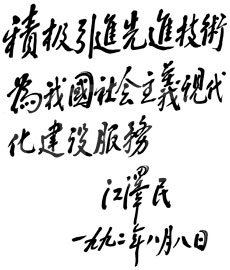 積极引進先進技術
為我國社会主義現代
化建设服務
江澤民
一九九二年八月八日